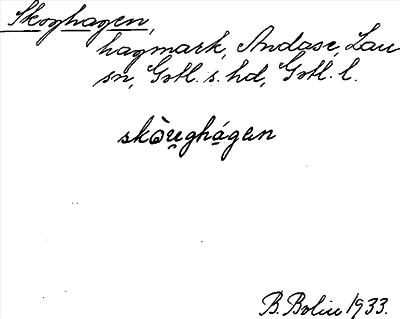 Skoghagen,
hagmark, Andase, Lau
sn, Gotl. s. hd, Gotl. l.
skòu̯ghágen
B. Bolin 1933.